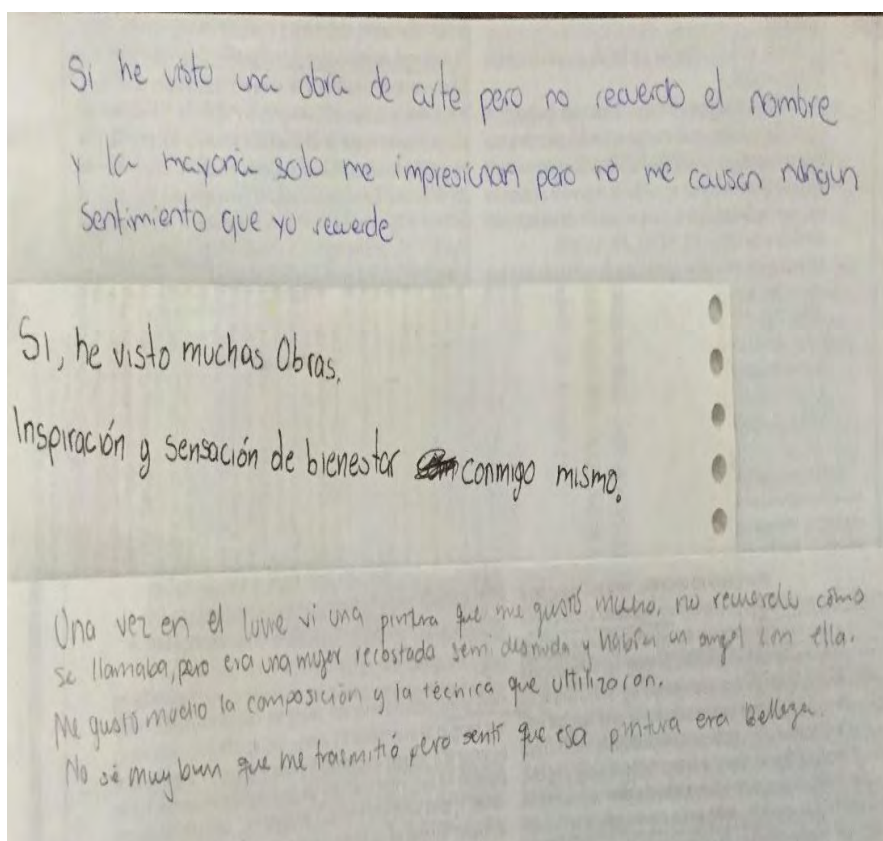 Si he visto una obra de arte pero no recuerdo el nombre
y la mayoria solo me impresionan pero no me causan ningun
sentimiento que yo recuerde
SI, he visto muchas Obras,
Inspiración y sensación de bienestar conmigo mismo.
Una vez en el louvre vi una pintura que me gustó mucho, no recuerdo cómo
se llamaba, pero era una mujer recostada semi desnuda y habían un angel con ella.
Me gustó mucho la composición y la técnica que ultilizaron.
No sé muy bien que me trasmitió pero sentí que esa pintura era Belleza.